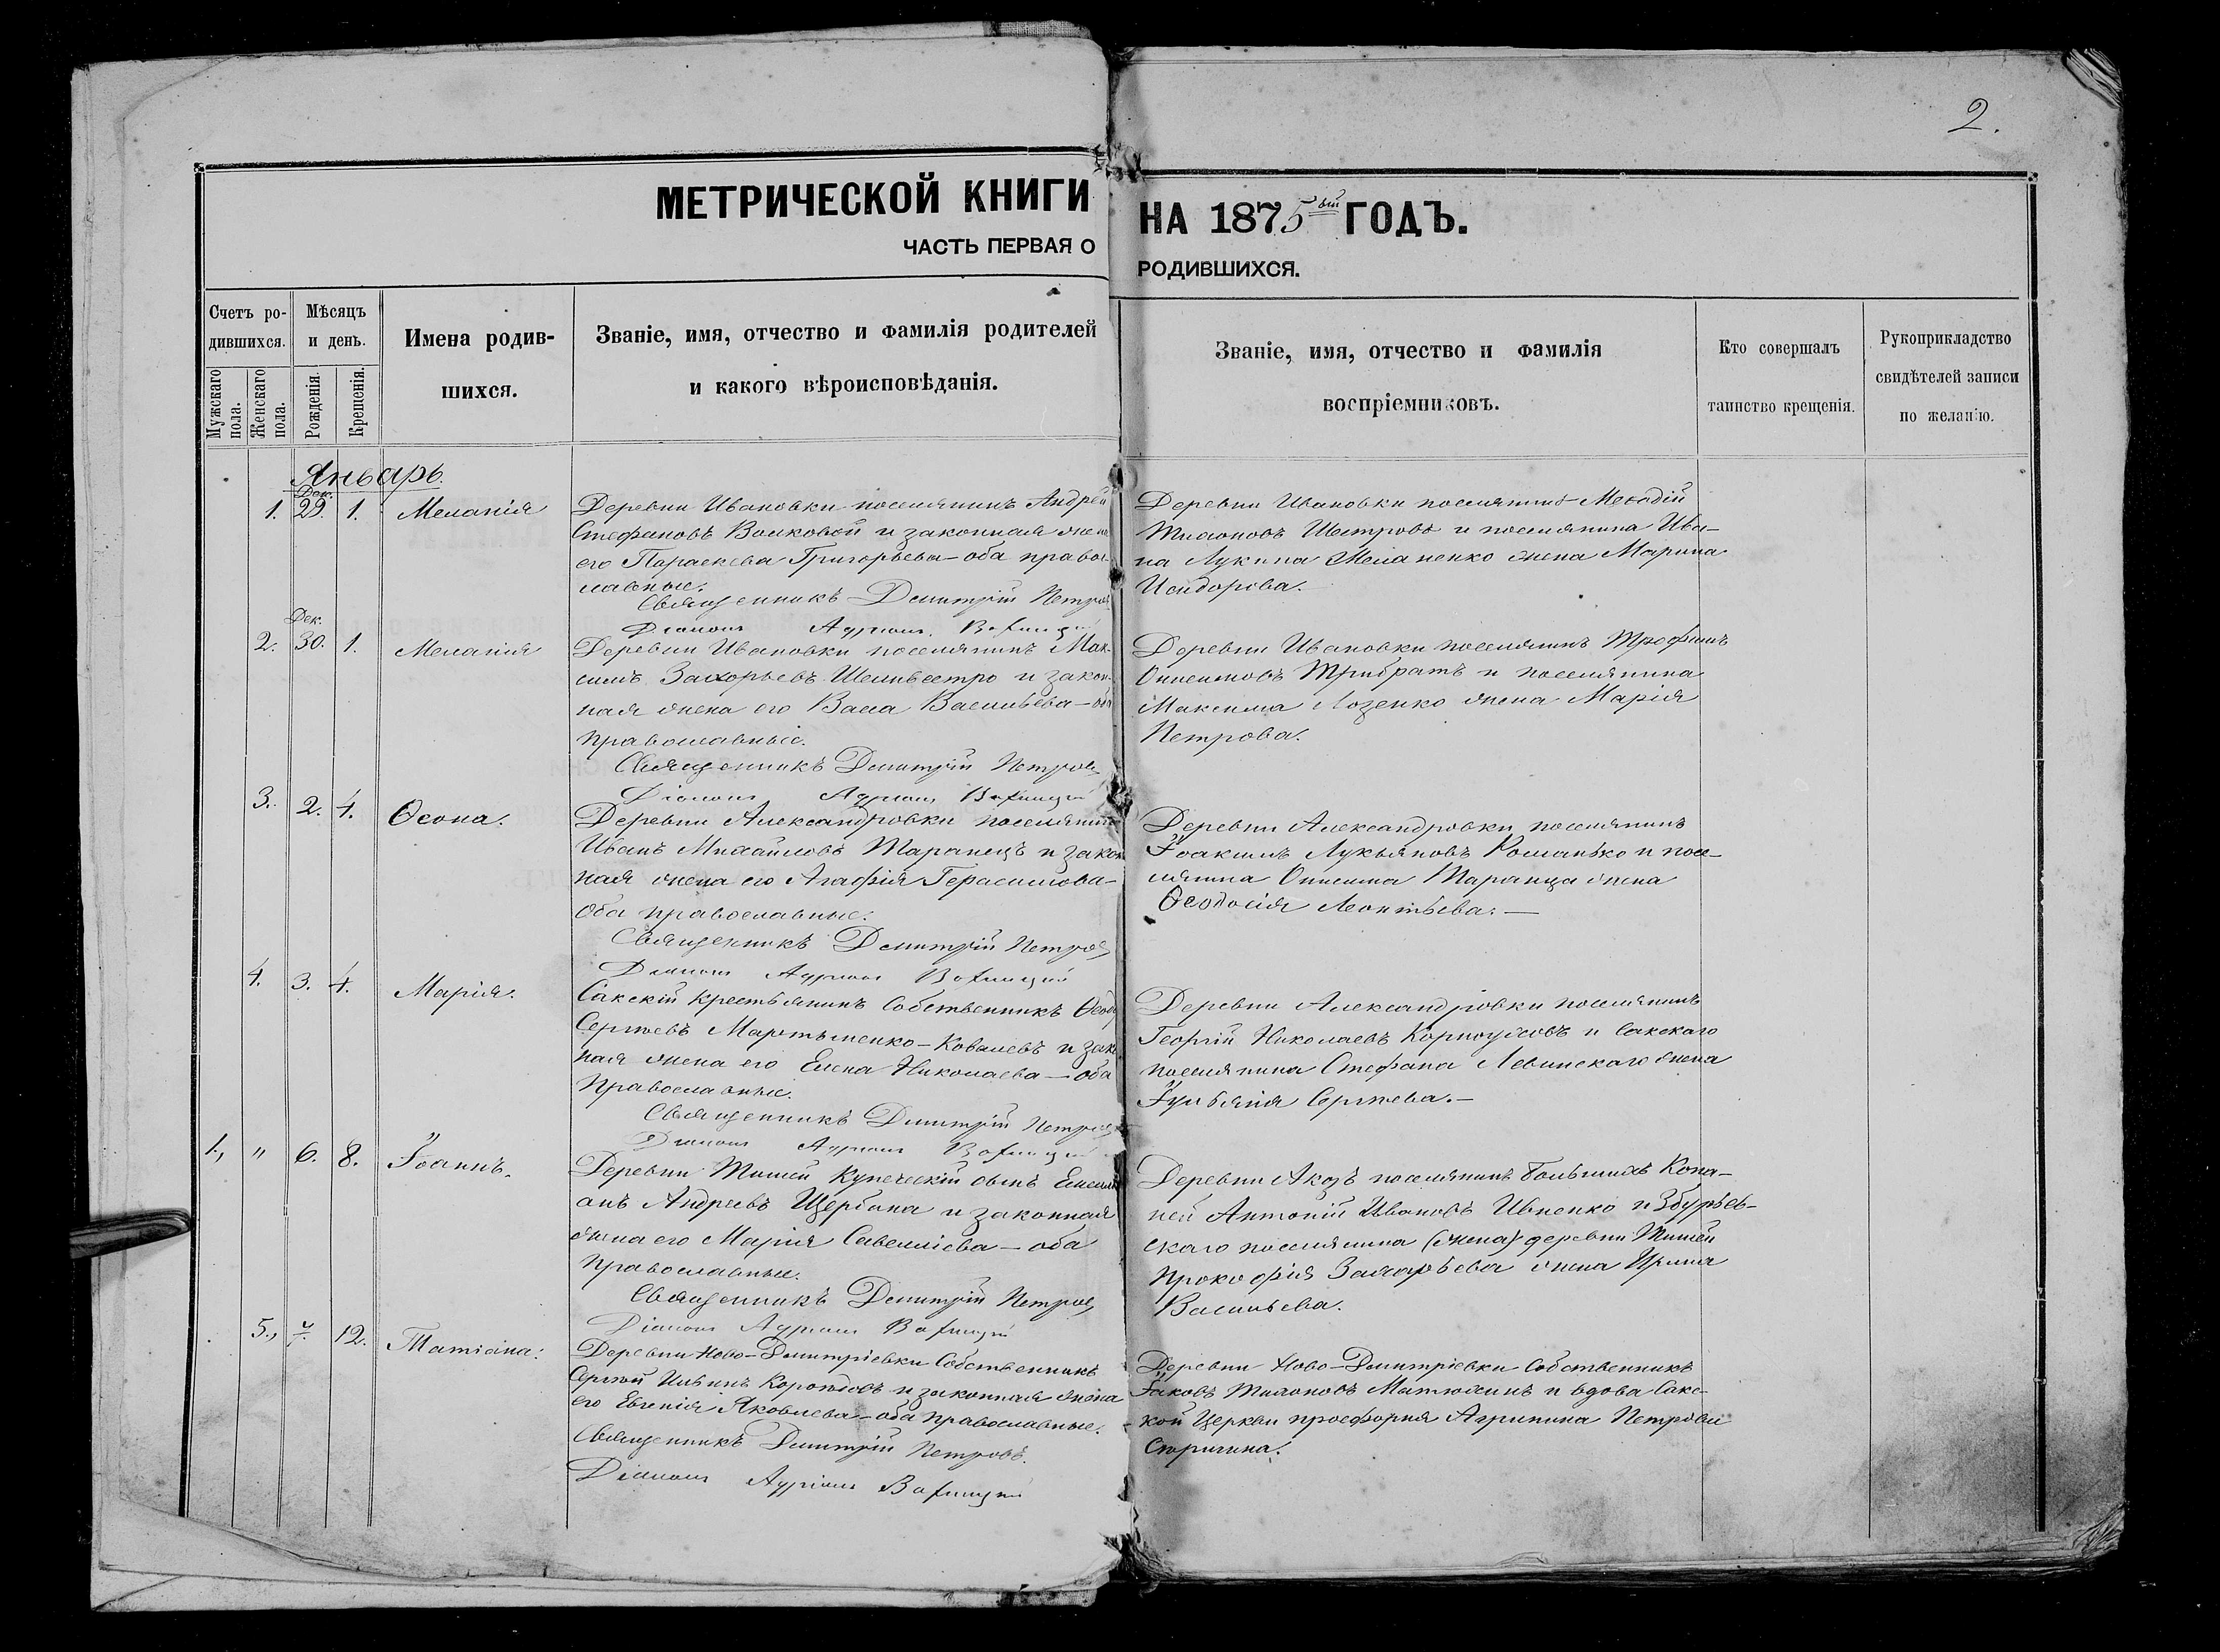 2.
МЕТРИЧЕСКОЙ КНИГИ НА 1875ый ГОДЪ.
ЧАСТЬ ПЕРВАЯ О РОДИВШИХСЯ.
Счетъ ро-
дившихся.
Мужскаго пола.
Женскаго пола.
Мѣсяцъ
и день.
Рожденія.
Крещенія.
Имена родив-
шихся.
Званіе, имя, отчество и фамилія родителей
и какого вѣроисповѣданія.
Званіе, имя, отчество и фамилія
воспріемниковъ.
Кто совершалъ
таинство крещенія.
Рукоприкладство
свидѣтелей записи
по желанію.
Январь.
Дек.
1. 29. 1. Меланія
Деревни Ивановки поселянинъ Андрей
Стефановъ Волковой и законная жена
его Параскева Григорьева – оба право-
славные.
Священникъ Димитрій Петровъ
Діаконъ
Деревни Ивановки поселянинъ
и поселянина Ива-
на Лукина жена Марина
Исидорова.
Дек.
2. 30. 1. Меланія
Деревни Ивановки поселянинъ Мак-
симъ Захарьевъ и закон-
ная жена его Васса Васильева – оба
православные.
Священникъ Димитрій Петровъ
Діаконъ
Деревни Ивановки поселянинъ Трофимъ
Онисимовъ Трибратъ и поселянина
Максима Лозенко жена Марія
Петрова.
3. 2. 4. Ѳеона.
Деревни Александровки поселянинъ
Иванъ Михайловъ Таранецъ и закон
ная жена его Агафія Герасимова –
оба православные.
Священникъ Димитрій Петровъ
Діаконъ
Деревни Александровки поселянинъ
Іоакимъ Лукьяновъ Романько и посе-
лянина Онисима Таранца жена
Ѳеодосія Леонтьева. —
4. 3. 4. Марія.
Сакскій крестьянинъ собственникъ
Сергѣевъ Мартыненко – Ковалевъ и зако
ная жена его Елена Николаева – оба
православные.
Священникъ Димитрій Петровъ
Діаконъ
Деревни Александровки поселянинъ
Георгій Николаевъ и Сакскаго
поселянина Стефана Левинскаго жена
Іуліанія Сергѣева. –
1., " 6. 8. Іоаннъ.
Деревни купеческій сынъ Емели
анъ Андреевъ Щербина и законная
жена его Марія Савелліева – оба
православные.
Священникъ Димитрій Петровъ
Діаконъ
Деревни поселянинъ Большихъ Копа-
ней Антоній Ивановъ Ивненко и Збурьев-
скаго поселянина (жена) деревни
Прокофія Захарьева жена Ирина
Васильева.
5., 7. 12. Татіана.
Деревни Ново-Димитріевки собственникъ
Сергѣй Ильинъ и законная жена
его Евгенія Яковлева – оба православные.
Священникъ Димитрій Петровъ.
Діаконъ
Деревни Ново-Димитріевки собственникъ
Іаковъ Тихоновъ Матюхинъ и вдова Сакс-
кой Церкви просфорня Агрипина Петрова